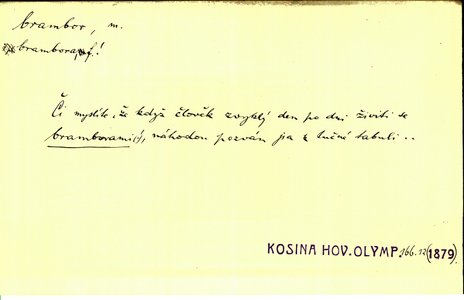 brambor, m.
brambora, f.!
Či myslíte, že když člověk zvyklý den po dni živiti se
bramborami(!), náhodou pozván jsa k tučné tabuli..
KOSINA HOV. OLYMP. 166.12 (1879).